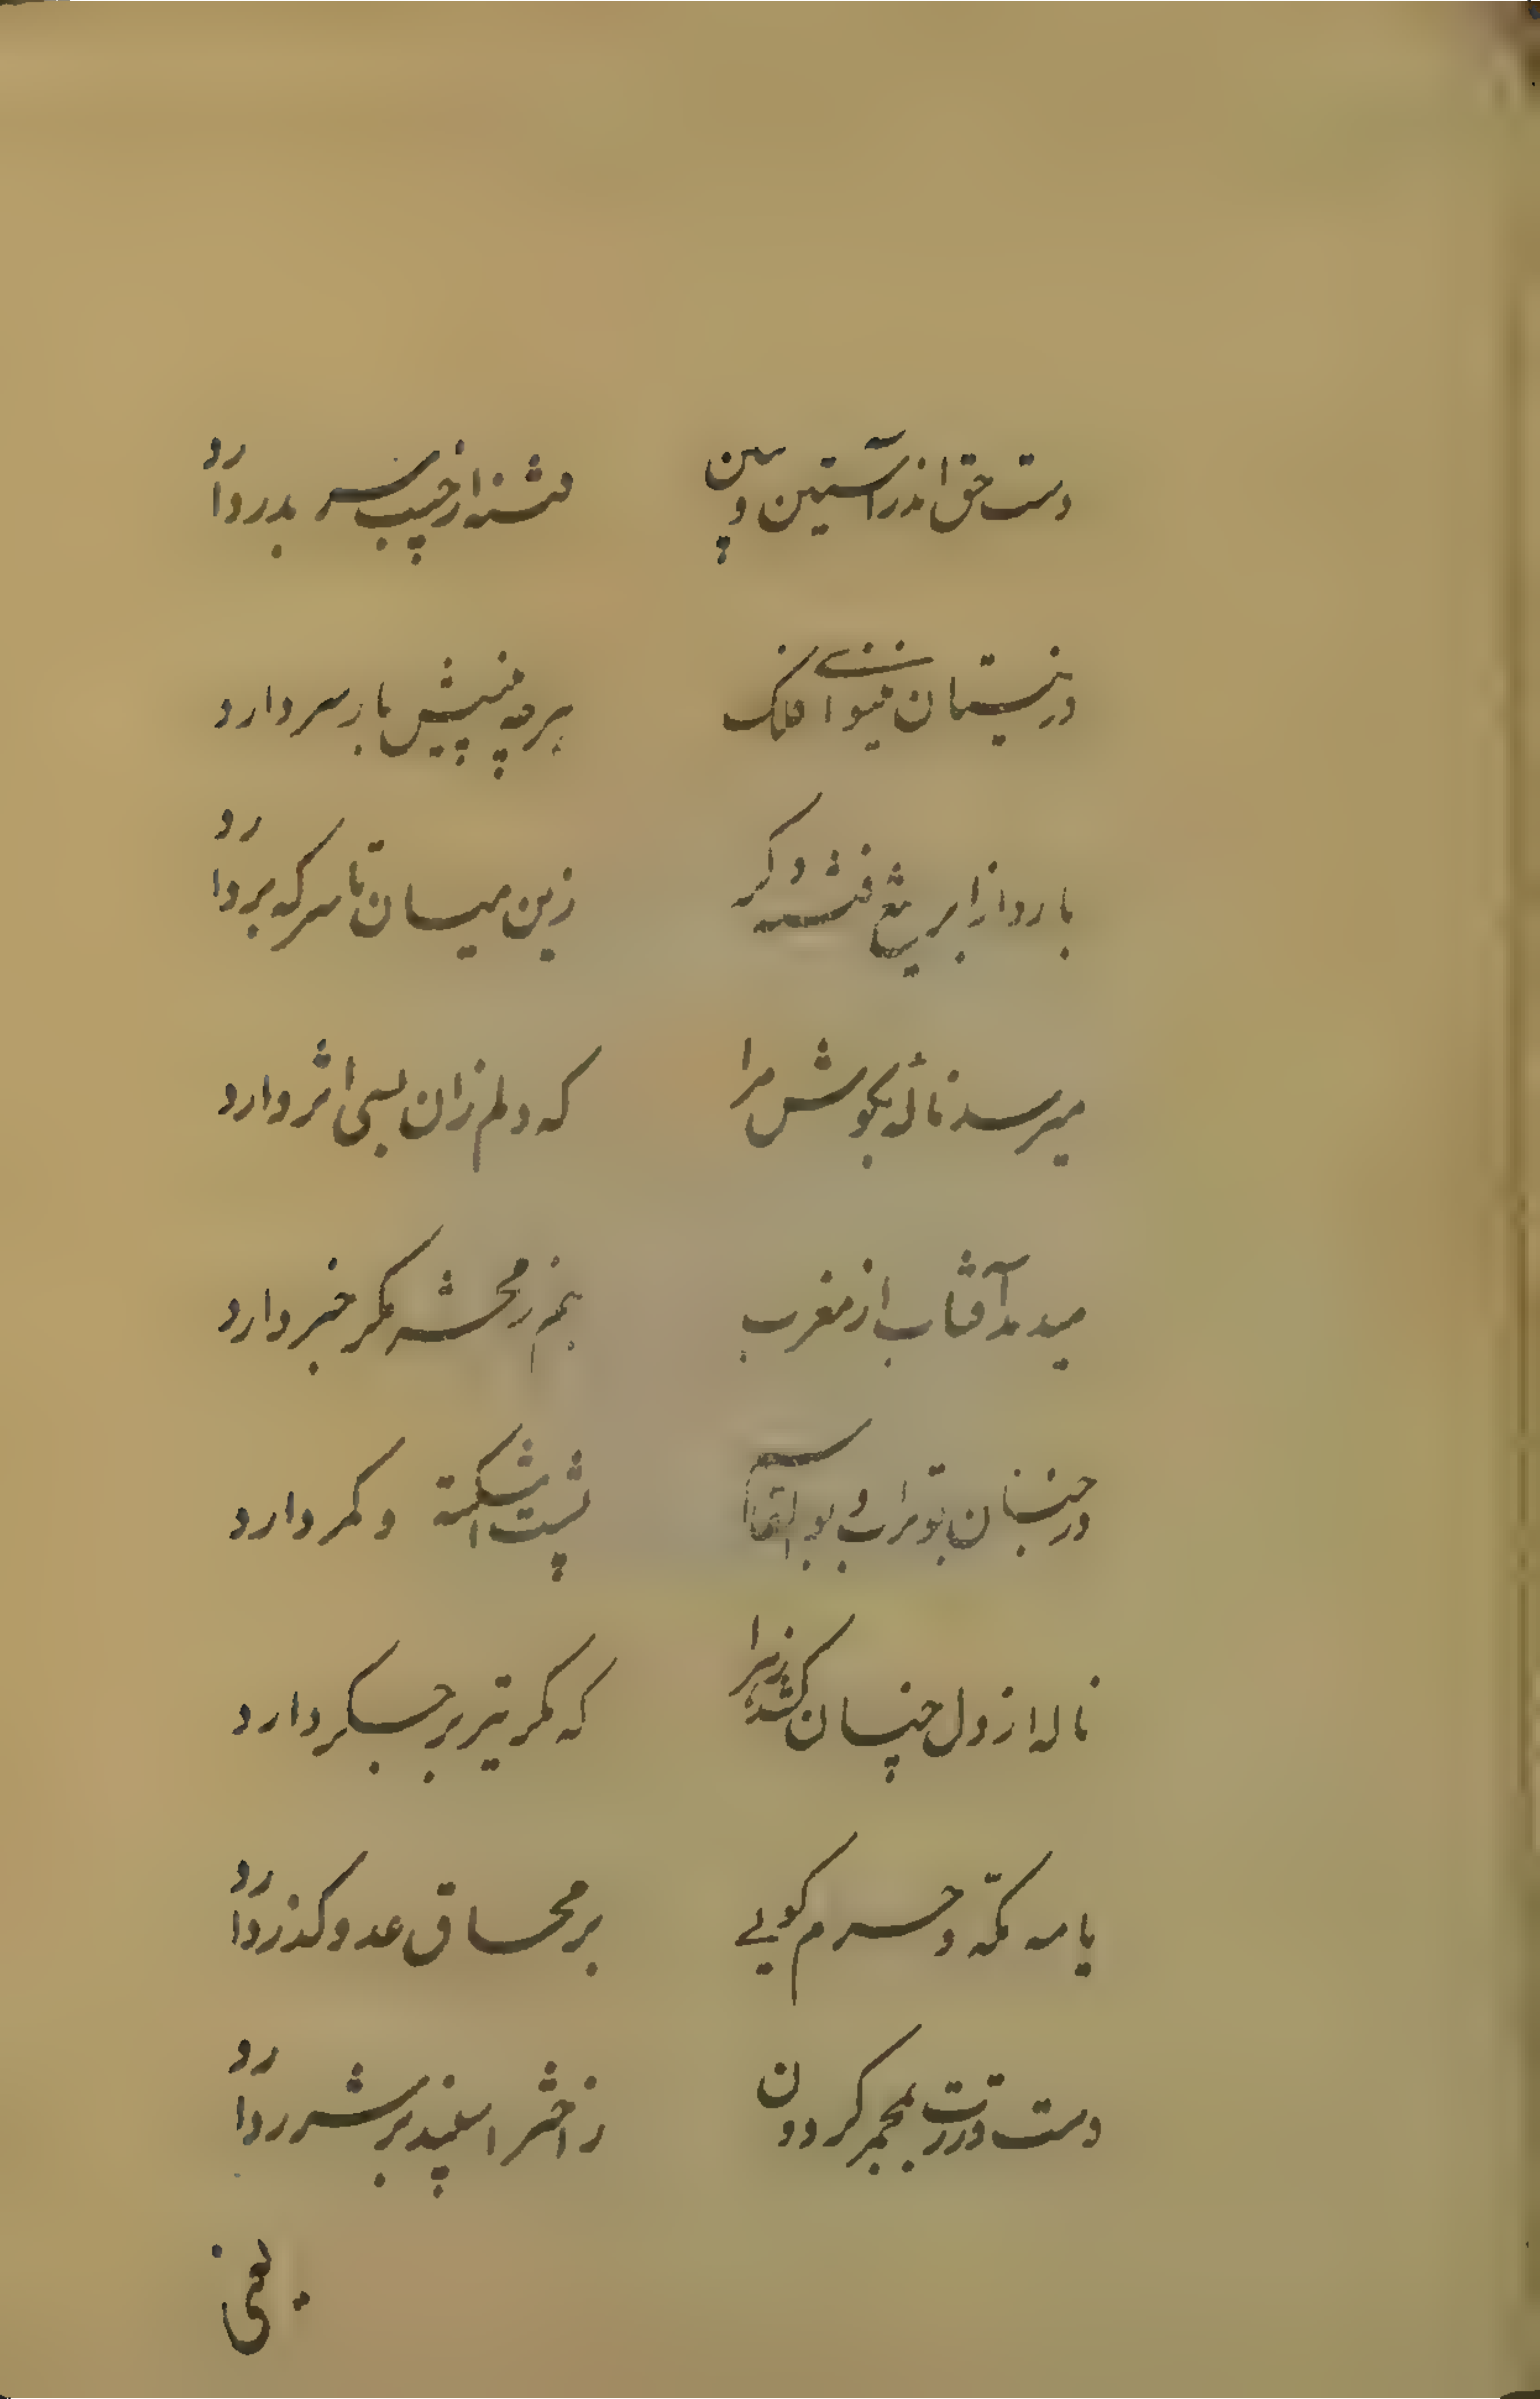 دست حق اندر آستین و ببین فتنه از جیب سر بدر دارد
در نیستان نینوا افلک هر چه نی پیش بار سر دارد
بارد از ابر تیغ فتنه و کر زین میان تا سر که بردارد
میرسد ناله بکوش مرا که دلم زان بسی اثر دارد
میدمد آفتاب از مغرب بنم ز محشر مکر خبر دارد
در جنان بوتراب و بوالقاسم پشت اشکسته و کمر دارد
ناله از دل چنان کشد زهرا که مکر تیر بر جکر دارد
یا مه مکّه و حرم کویی بر محاق عدو کذر دارد
دست قدرت بمجمر کردون ز اختر اسپند بر شرر دارد
یعنی